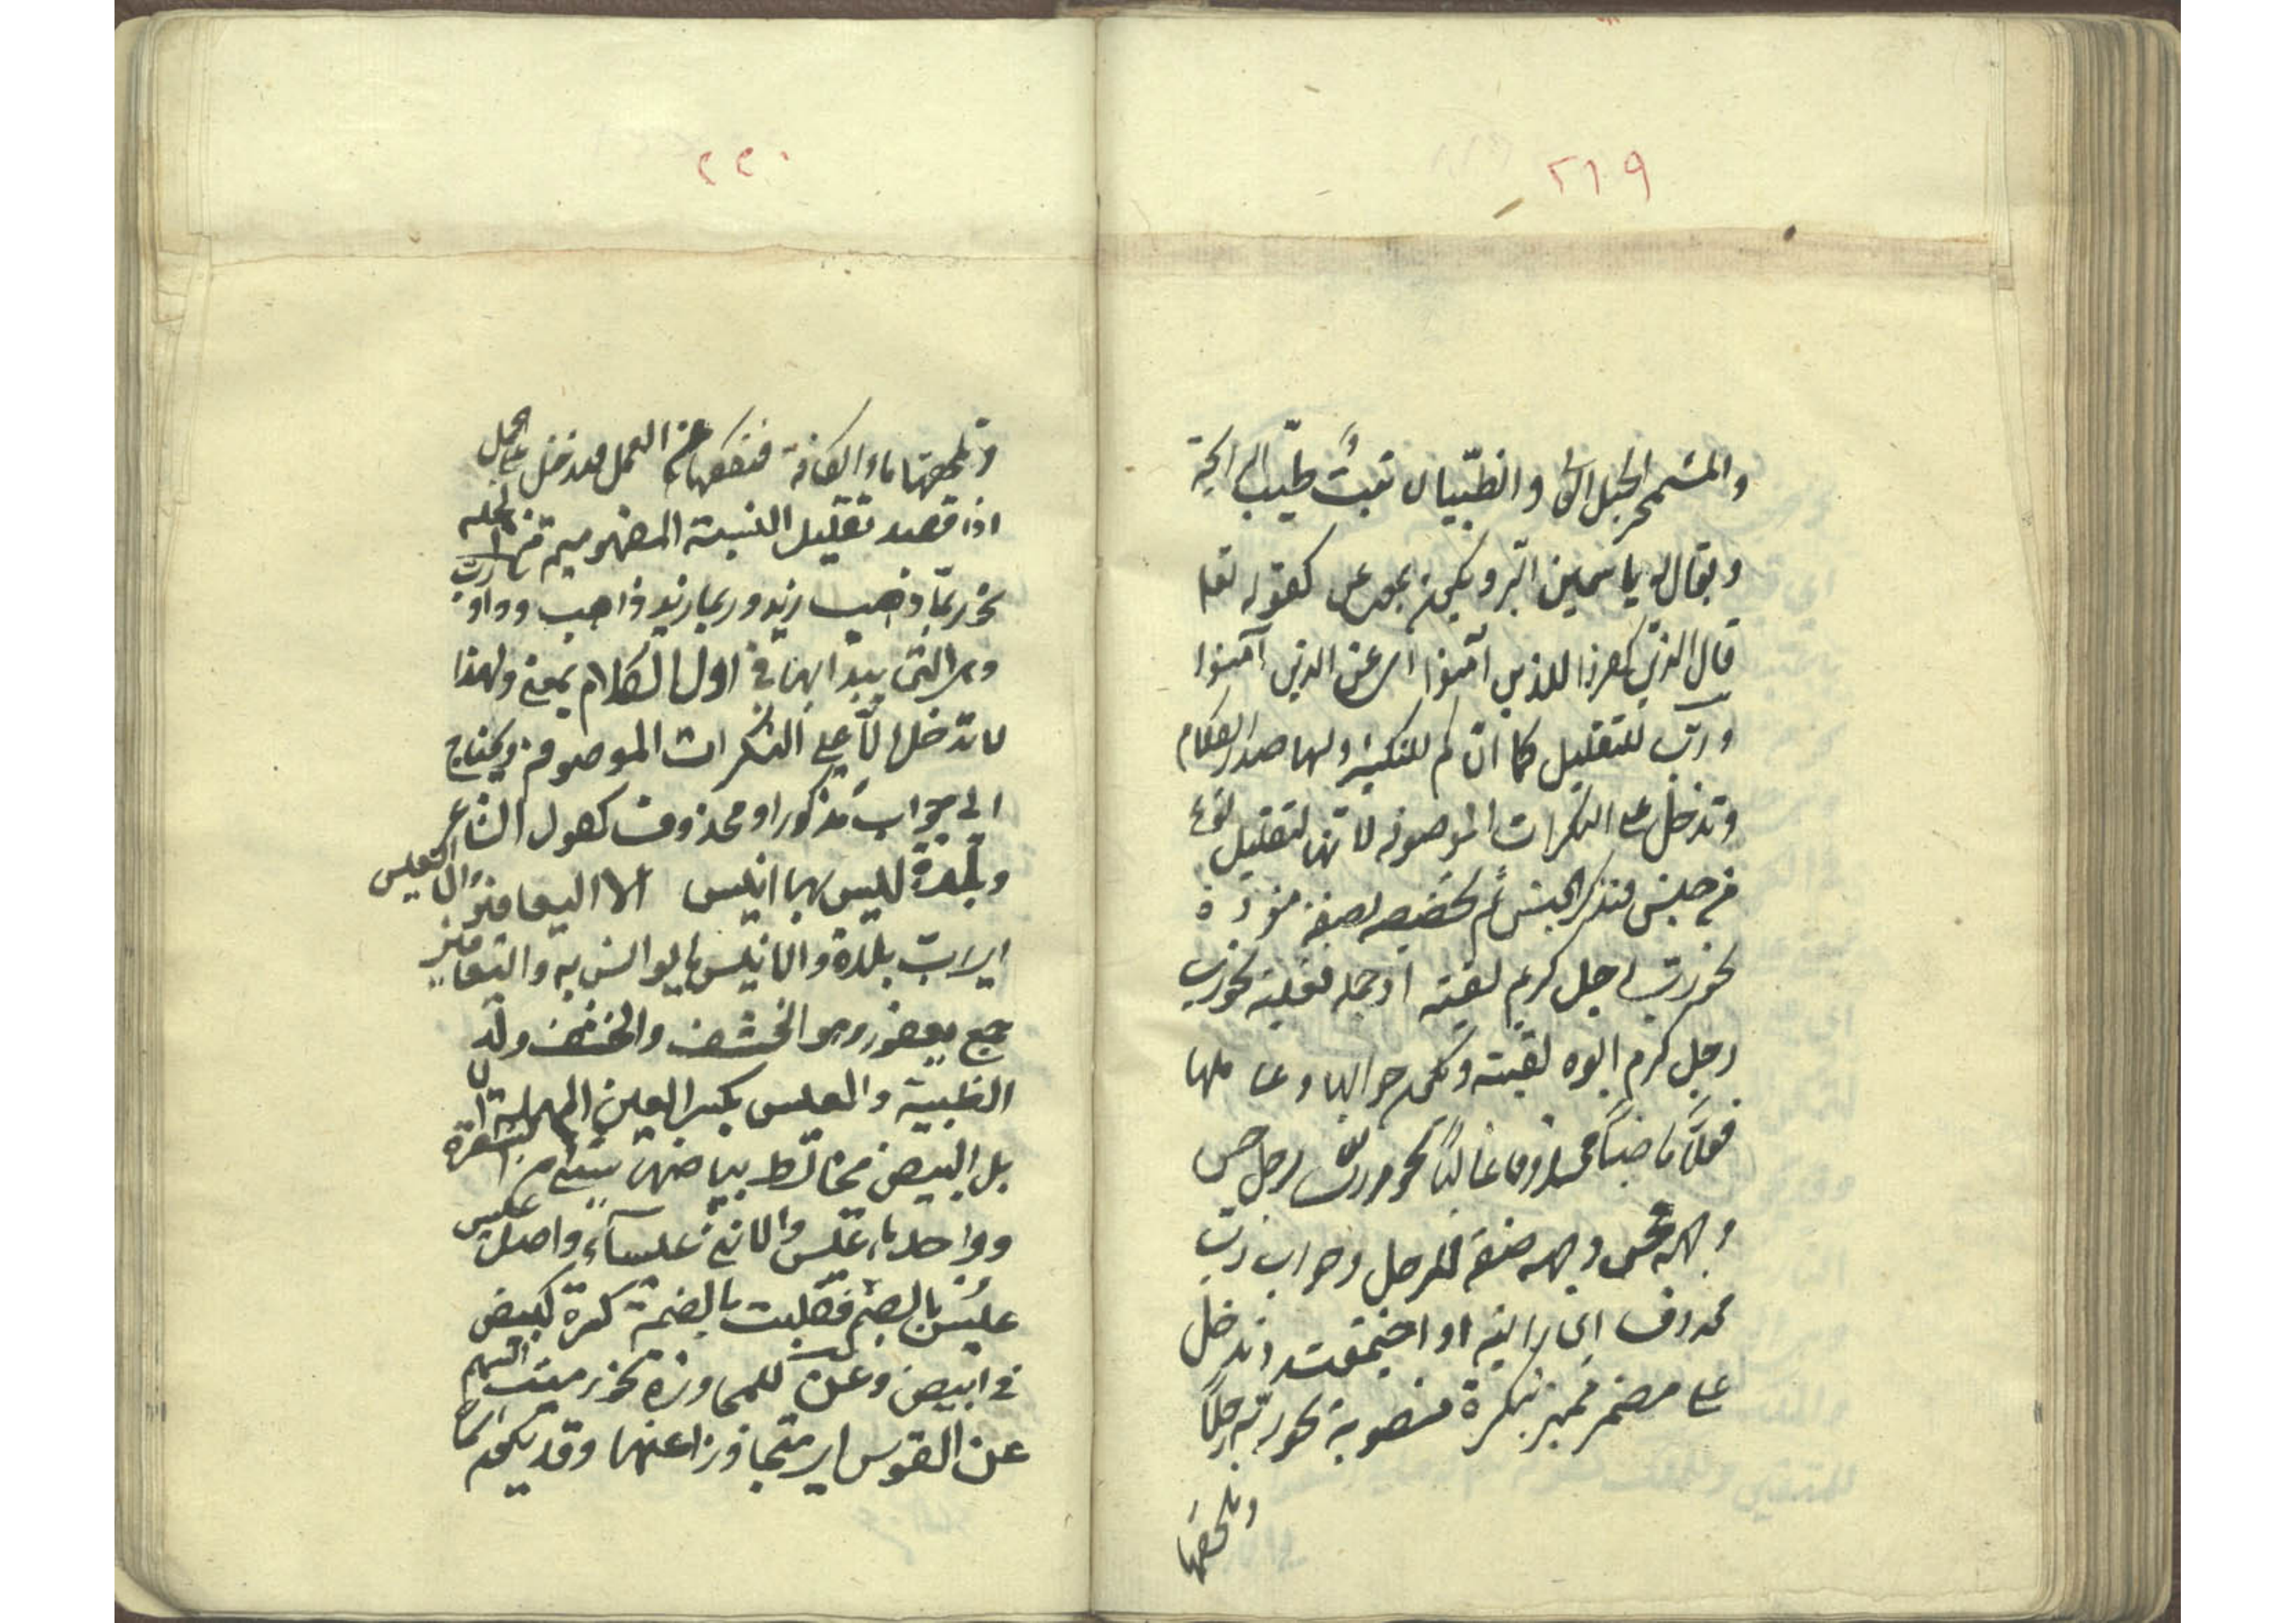 ٢١٩
والمشمخر الجبل العالي والظيّان نبتٌ طيّب الرائحة
ويقال له ياسمين البر ويكون بمعنى عن كقوله تعا
قال الذين كفروا للذين آمنوا اى عن الذين آمنوا
وربّ للتقليل كما انّ كم للتكثير ولها صدر الكلام
وتدخل على النكرات الموصوفه لانّها لتقليل نوع
من جنس فتذكر الجنس ثم تخصّصه بصفة مفردة
نحو ربّ رجل كريم لقيته او جمله فعلية نحو ربّ
رجل كرم ابوه لقيته ويكون جوابها وعاملها
فعلًا ماضيًا محذوفا غالبًا نحو ربّ رجل حسن
وجهه فحسن وجهه صفة للرجل وجواب ربّ
محذوف اى رايته او اجتمعت وتدخل
على مضمر مميز بنكرة منصوبة نحو ربّه رجلًا
وتلحقها
٢٢٠
وتلحقها ما الكافة فتكفها عن العمل فتدخل على الجمل
اذا قصد تقليل النسبة المفهومة من الجمله
نحو ربّما ذهب زيد وربما زيد ذاهب وواو ربّ
وهى التى يبتدأ بها فى اول الكلام بمعنى ولهذا
لا تدخل الّا على النكرات الموصوفة ويحتاج
الى جواب مذكورا و محذوف كقول الشاعر
وبلدة ليس بها انيس الا اليعافير والّا العيس
اى ربّ بلدة والانيس ما يوانس به واليعافير
جمع يعفور وهو الخشف والخشف ولد
الظبية والعيس بكسر العين المهملة الا
بل البيض يخالط بياضها شئ من الشقرة
وواحدها عيس والانثى عيساء واصل عيس
عيُس بالضم فقلبت بالضمة كسرة كبيض
فى ابيض وعن للمجاوزة نحو رميت السهم
عن القوس اى متجاوزا عنها وقد يكون اسما